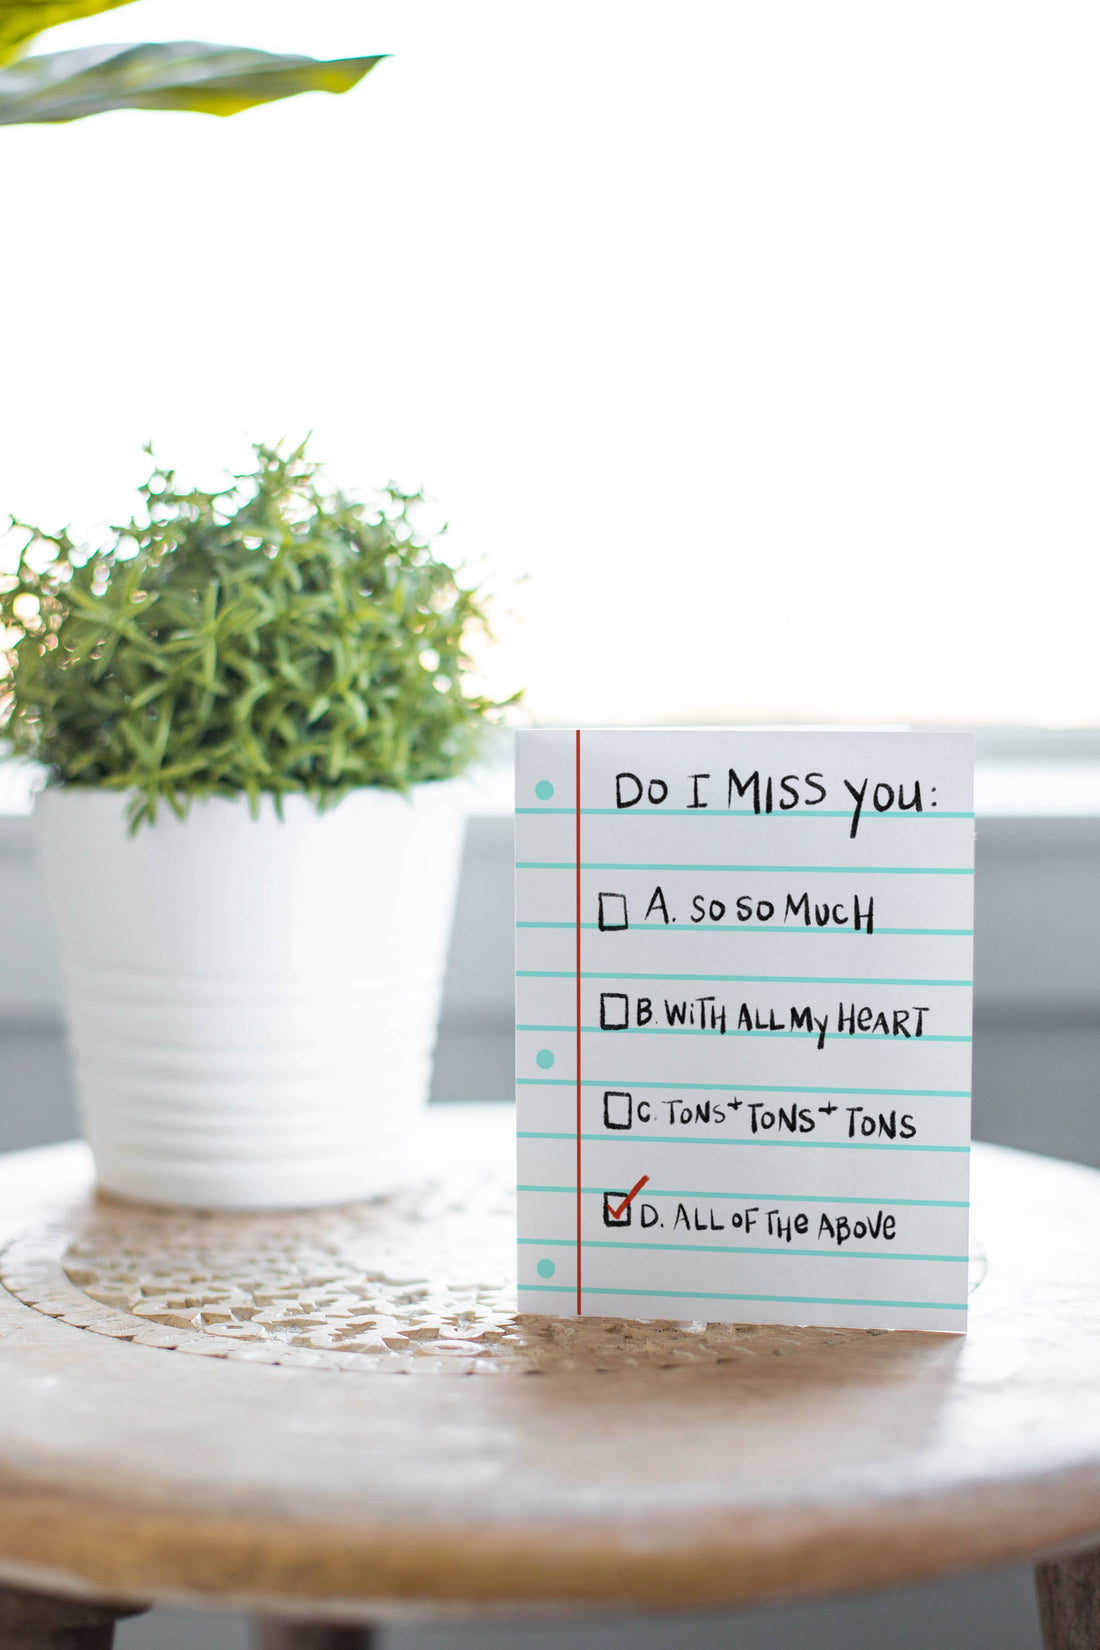 Do I MISS YOU:
A. SO SO MUCH
B. WiTH ALL MY HeART
C. TONS + TONS + TONS
D. ALL OF THe ABOVe